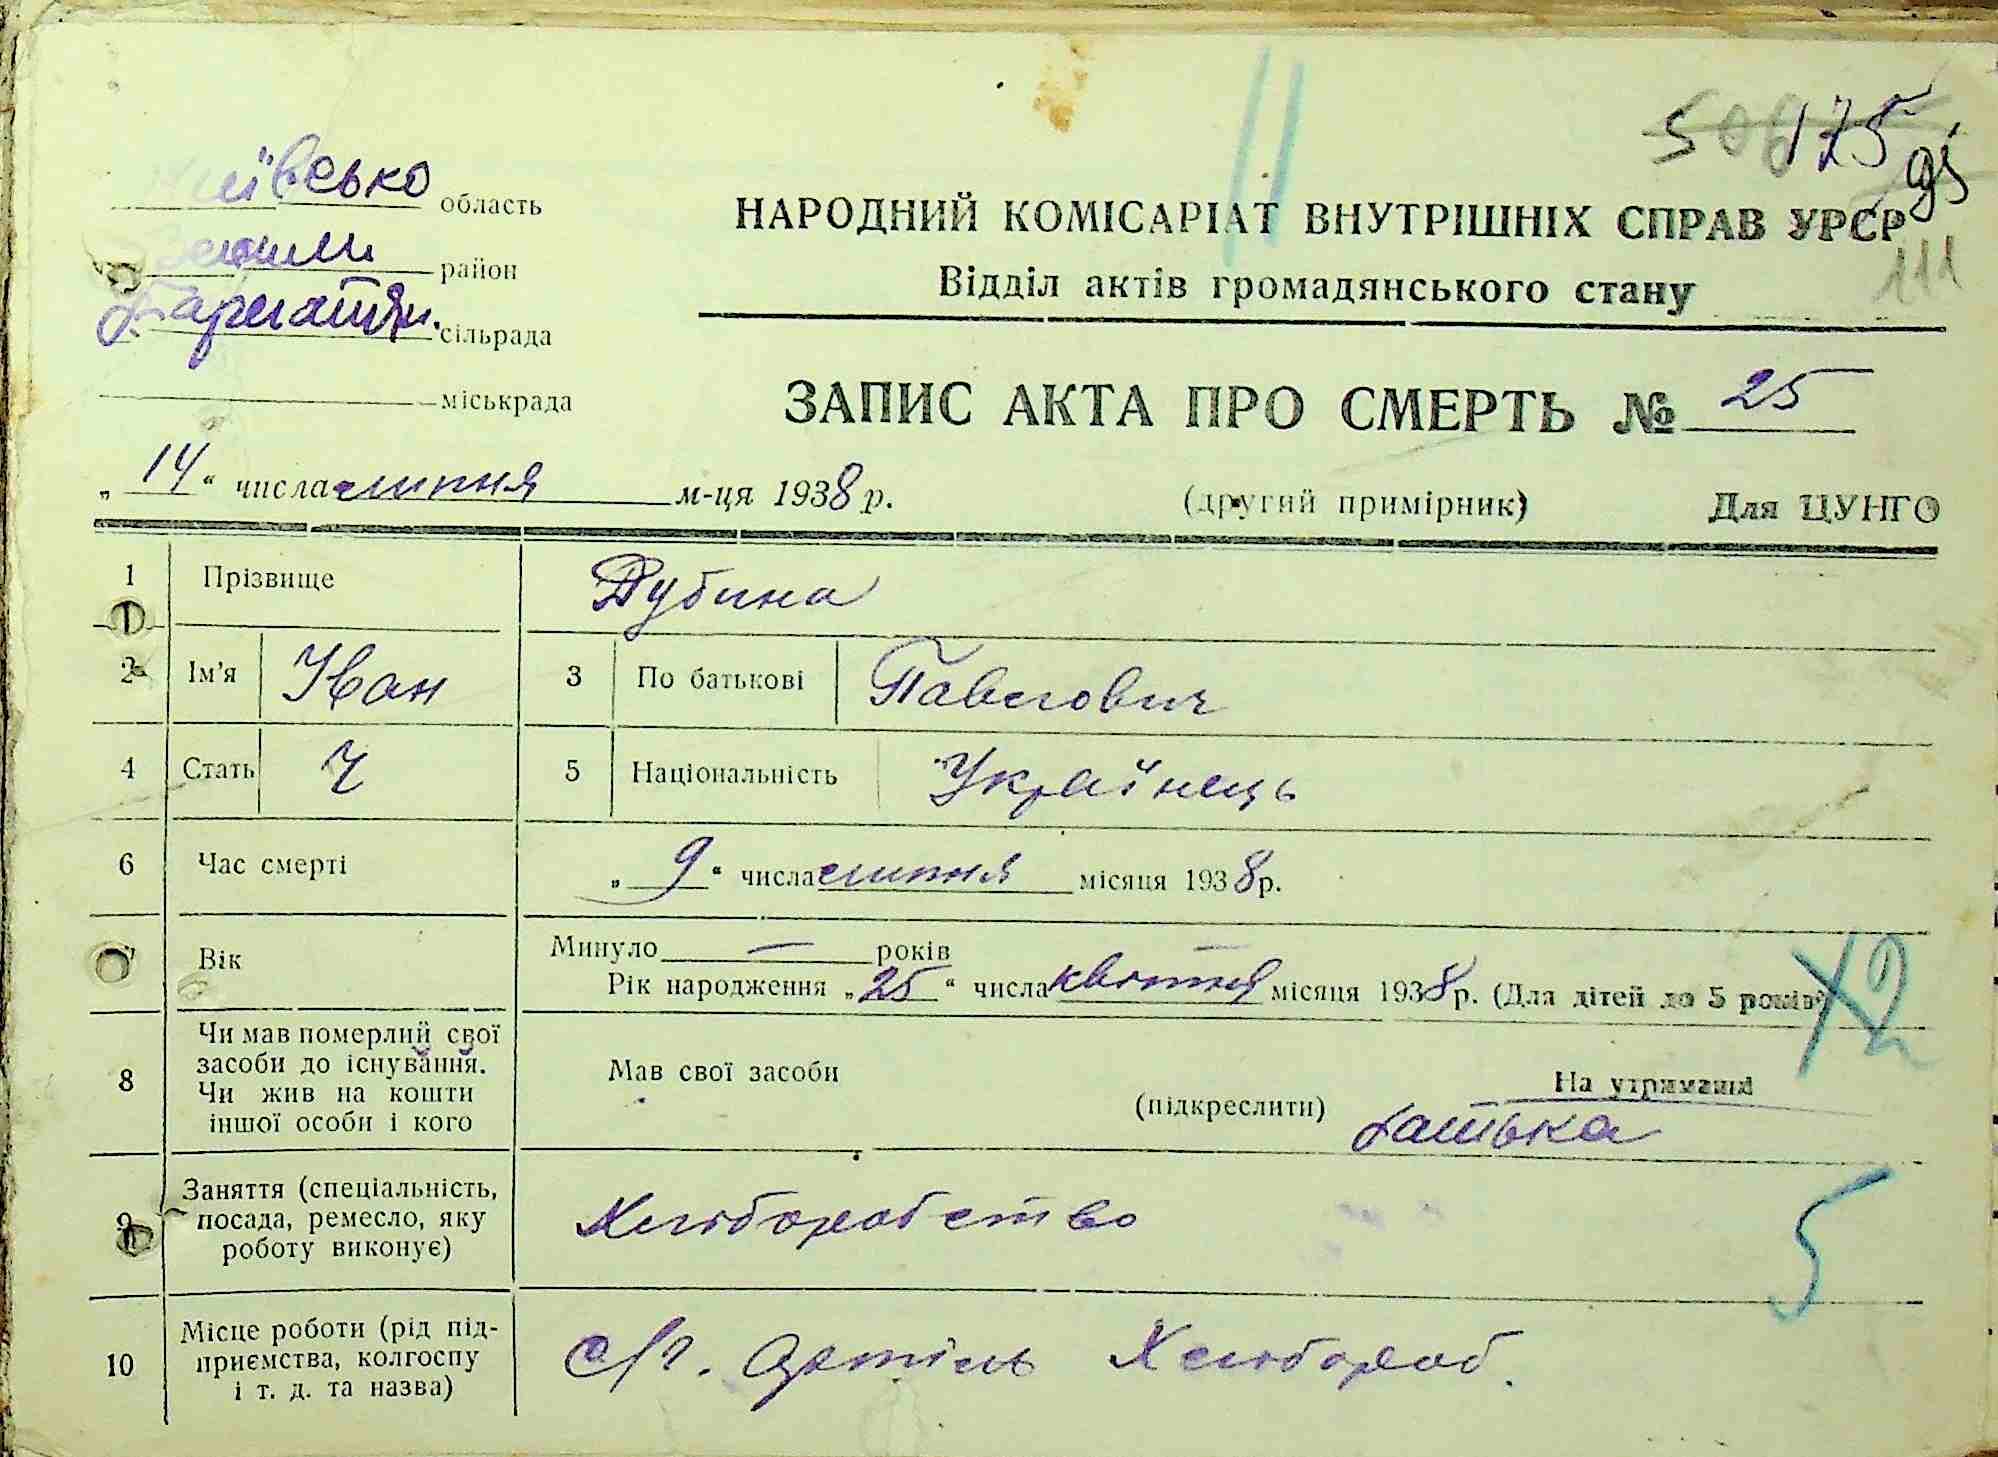 175
95
111
Київсько область
район
сільрада
міськрада
НАРОДНИЙ КОМІСАРІАТ ВНУТРІШНІХ СПРАВ УРСР
Відділ актів громадянського стану
ЗАПИС АКТА ПРО СМЕРТЬ № 25
„14“ числа липня м-ця 1938 р.
(другий примірник) Для ЦУНГО
1 Прізвище Дубина
2 Ім’я Іван 3 По батькові Павлович
4 Стать Ч 5 Національність Українець
6 Час смерті „9“ числа липня місяця 1938 р.
7 Вік Минуло — років
Рік народження „25“ числа квітня місяця 1938 р. (Для дітей до 5 років)
8 Чи мав померлий свої
засоби до існування.
Чи жив на кошти
іншої особи і кого
Мав свої засоби (підкреслити) На утриманні
батька
9 Заняття (спеціальність,
посада, ремесло, яку
роботу виконує)
Хліборобство
5
10 Місце роботи (рід під-
приємства, колгоспу
і т. д. та назва)
с/г. Артіль Хлібороб.